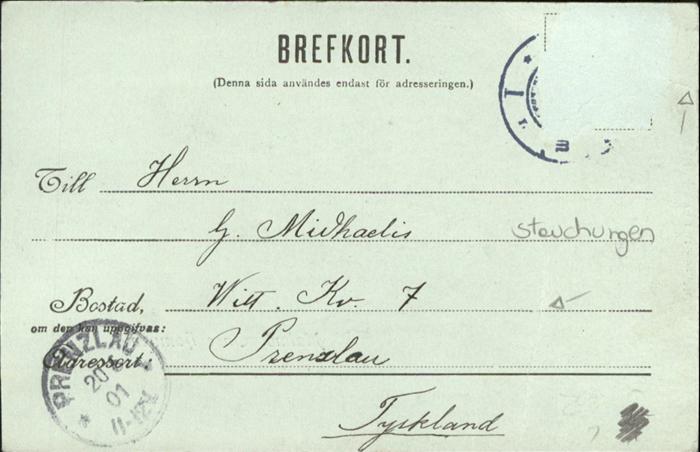 BREFKORT.
(Denna sida användes endast för adresseringen.)
Till Herrn
G. Michaelis
stauchungen
Bostad, Witt. Kv. 7
om den kan uppgifvas:
Adressort: Prenzlau
PRENZLAU
20
01
11-12V
Tyskland